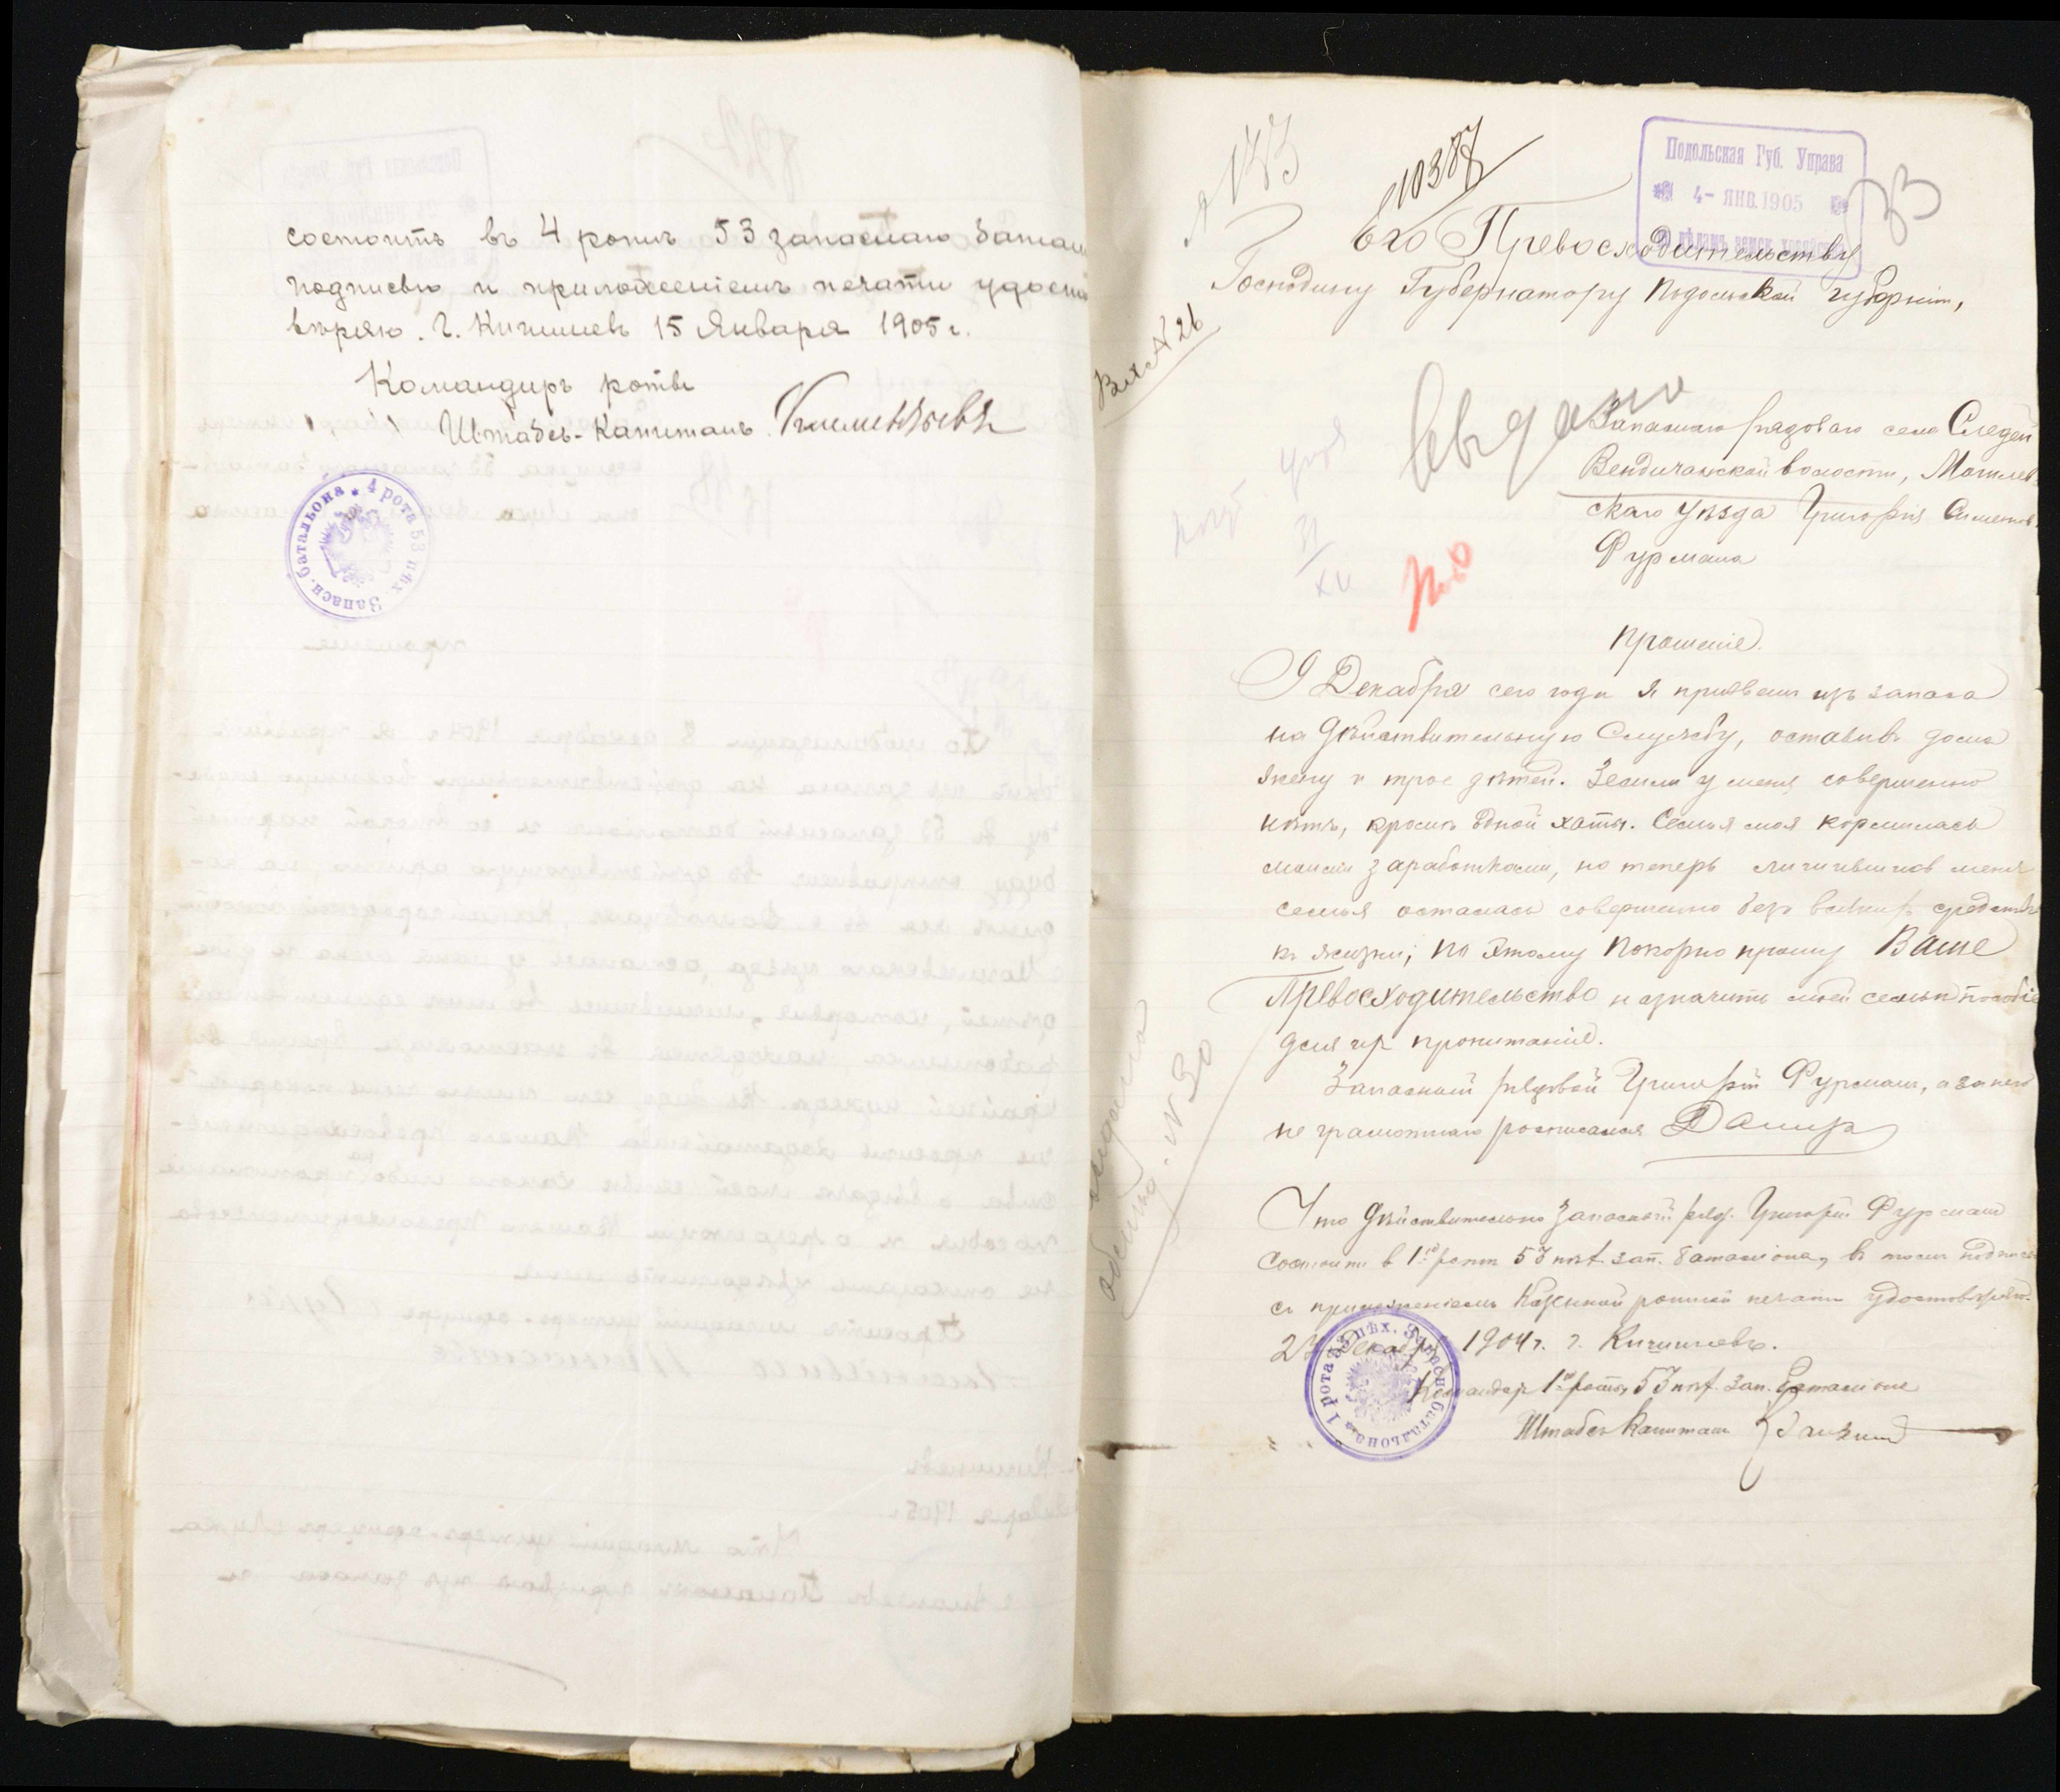 состоитъ въ 4 ротѣ 53 запаснаго батал
подписью и приложеніемъ печати удосто
вѣряю. Г. Кишиневъ 15 Января 1905 г.
Командиръ роты
Штабсъ-Капитанъ
4 рота 53 пѣх. Запасн. баталіона
№ 143
10387
Подольская Губ. Управа
4 - ЯНВ. 1905
33
Его Превосходительству
Господину Губернатору Подольской губерніи,
Вх № 26
Запаснаго рядоваго села Следей
Вендичанской волости, Могилев
скаго уѣзда Григорія Семенов
Фурмана
31
XII
Прошеніе.
9 Декабря сего года я призванъ изъ запаса
на дѣйствительную Службу, оставивъ дома
жену и трое дѣтей. Земли у меня совершенно
нѣтъ, кромѣ одной хаты. Семья моя кормилась
моими заработками, но теперь лишившись меня
семья осталась совершенно безъ всякихъ средствъ
къ жизни; по этому покорно прошу Ваше
Превосходительство назначить моей семьи пособіе
для ихъ пропитаніе.
Запасный рядовой Григорій Фурманъ, а за него
не грамотнаго росписался
Что дѣйствительно запасный ряд. Григорій Фурманъ
состоитъ в 1й ротѣ 53 пѣх. зап. баталіона, въ томъ подпись
съ приложеніемъ Казенной ротной печати удостовѣряю.
23 Декабря 1904 г. г. Кишиневъ.
Командиръ 1й роты 53 пѣх. зап. баталіона
Штабсъ Капитанъ
1 рота 53 пѣх. Запасн. баталіона
№ 30